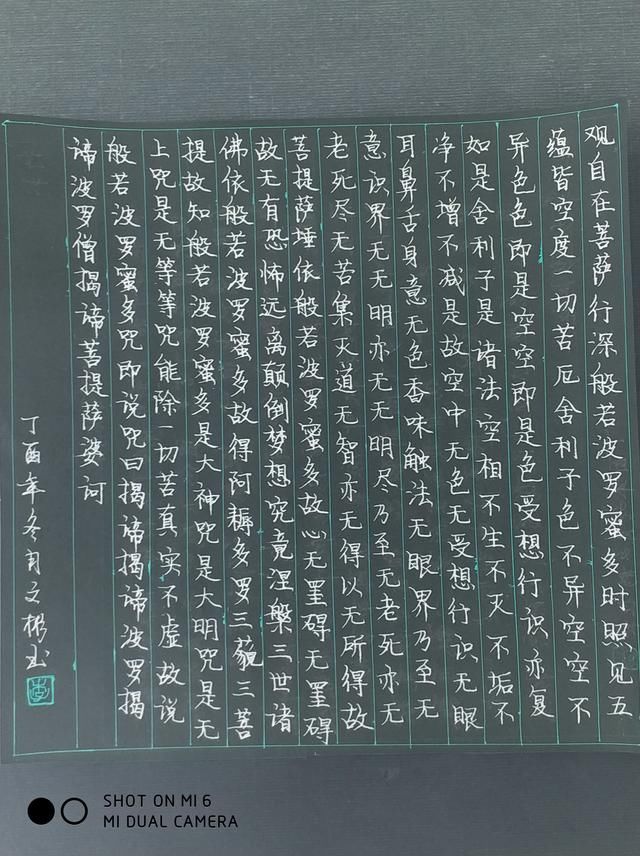 观自在菩萨行深般若波罗蜜多时照见五
蕴皆空度一切苦厄舍利子色不异空空不
异色色即是空空即是色受想行识亦复
如是舍利子是诸法空相不生不灭不垢不
净不增不减是故空中无色无受想行识无眼
耳鼻舌身意无色香味触法无眼界乃至无
意识界无无明亦无无明尽乃至无老死亦无
老死尽无苦集灭道无智亦无得以无所得故
菩提萨埵依般若波罗蜜多故心无罣碍无罣碍
故无有恐怖远离颠倒梦想究竟涅槃三世诸
佛依般若波罗蜜多故得阿耨多罗三藐三菩
提故知般若波罗蜜多是大神咒是大明咒是无
上咒是无等等咒能除一切苦真实不虚故说
般若波罗蜜多咒即说咒曰揭谛揭谛波罗揭
谛波罗僧揭谛菩提萨婆诃
丁酉年冬月文彬书
SHOT ON MI 6
MI DUAL CAMERA